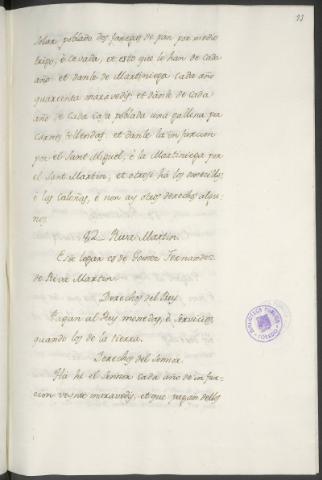 33
solar poblado dos fanegas de pan por medio
trigo, è cevada, et esto que lo han de cada
año et danle de Martiniega cada año
quarenta maravedis; et danle de cada
año de cada casa poblada una gallina por
Carnes tollendas, et danle la infurcion
por el Sant Miguel, è la Martiniega por
el Sant Martin, et otrosi há los omecillos
è las caloñas, è non ay otros derechos algu-
nos.
Riva Martin.
Este logar es de Gomez Fernandez
de Riva Martin
Derechos del Rey
Pagan al Rey monedas, è servicios,
quando los de la tierra.
Derechos del Sennor.
Há hi el Sennor cada año de infur-
cion veynte maravedis, et que pagan dellos